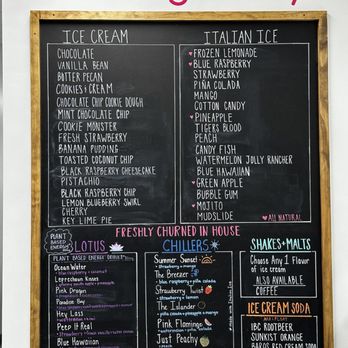 ICE CREAM
CHOCOLATE
VANILLA BEAN
BUTTER PECAN
COOKIES + CREAM
CHOCOLATE CHIP COOKIE DOUGH
MINT CHOCOLATE CHIP
COOKIE MONSTER
FRESH STRAWBERRY
BANANA PUDDING
TOASTED COCONUT CHIP
BLACK RASPBERRY CHEESECAKE
PISTACHIO
BLACK RASPBERRY CHIP
LEMON BLUEBERRY SWIRL
CHERRY
KEY LIME PIE
ITALIAN ICE
♥ FROZEN LEMONADE
♥ BLUE RASPBERRY
STRAWBERRY
PIÑA COLADA
MANGO
COTTON CANDY
♥ PINEAPPLE
TIGERS BLOOD
PEACH
CANDY FISH
WATERMELON JOLLY RANCHER
BLUE HAWAIIAN
♥ GREEN APPLE
BUBBLE GUM
♥ MOJITO
MUDSLIDE
♥ ALL NATURAL
FRESHLY CHURNED IN HOUSE
PLANT BASED ENERGY
LOTUS
PLANT BASED ENERGY DRINKS
Ocean Water
Leprechaun Kisses
Pink Dragon
Paradise Bay
Hey Loss
Peep It Real
Blue Hawaiian
CHILLERS
Summer Sunset
strawberry + mango
The Breezer
blue raspberry + piña colada
Strawberry Twist
strawberry + lemon
The Islander
Pink Flamingo
Just Peachy
* made with Italian Ice
SHAKES + MALTS
Choose Any 1 Flavor
of ice cream
ALSO AVAILABLE
COFFEE
ICE CREAM SODA
IBC ROOTBEER
SUNKIST ORANGE
BARQS RED CREAM SODA